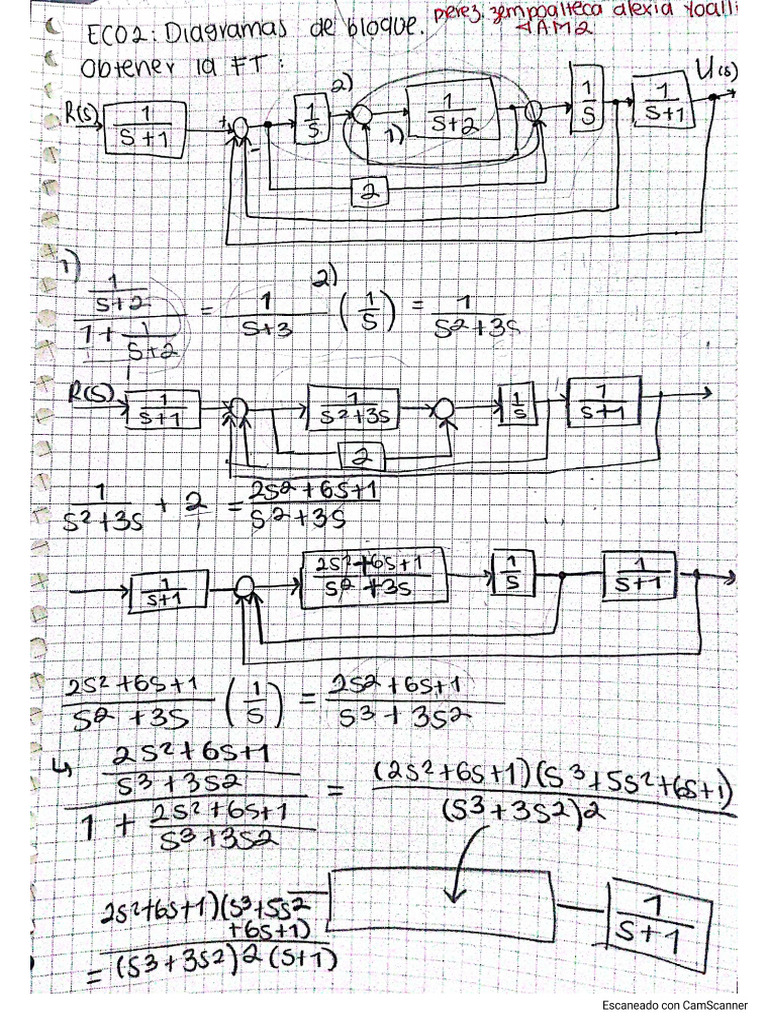 ECO2: Diagramas de bloque. perez zempoalteca alexia Yoalli
4AM2
Obtener la FT:
R(s) 1/(s+1) + - 1/s 2) 1) 1/(s+2) 1/s 1/(s+1) U(s)
2
1) (1/(s+2))/(1+1/(s+2)) = 1/(s+3) 2) (1/s) = 1/(s²+3s)
R(s) 1/(s+1) 1/(s²+3s) 1/s 1/(s+1)
2
1/(s²+3s) + 2/1 = (2s²+6s+1)/(s²+3s)
1/(s+1) (2s²+6s+1)/(s²+3s) 1/s 1/(s+1)
(2s²+6s+1)/(s²+3s) (1/s) = (2s2+6s+1)/(s³+3s²)
↳ ((2s²+6s+1)/(s³+3s2))/(1+(2s²+6s+1)/(s³+3s2)) = (2s²+6s+1)(s³+5s²+6s+1)/(s³+3s2)2
1/(s+1)
= 2s²+6s+1)(s³+5s²+6s+1)/(s³+3s²)2(s+1)
Escaneado con CamScanner